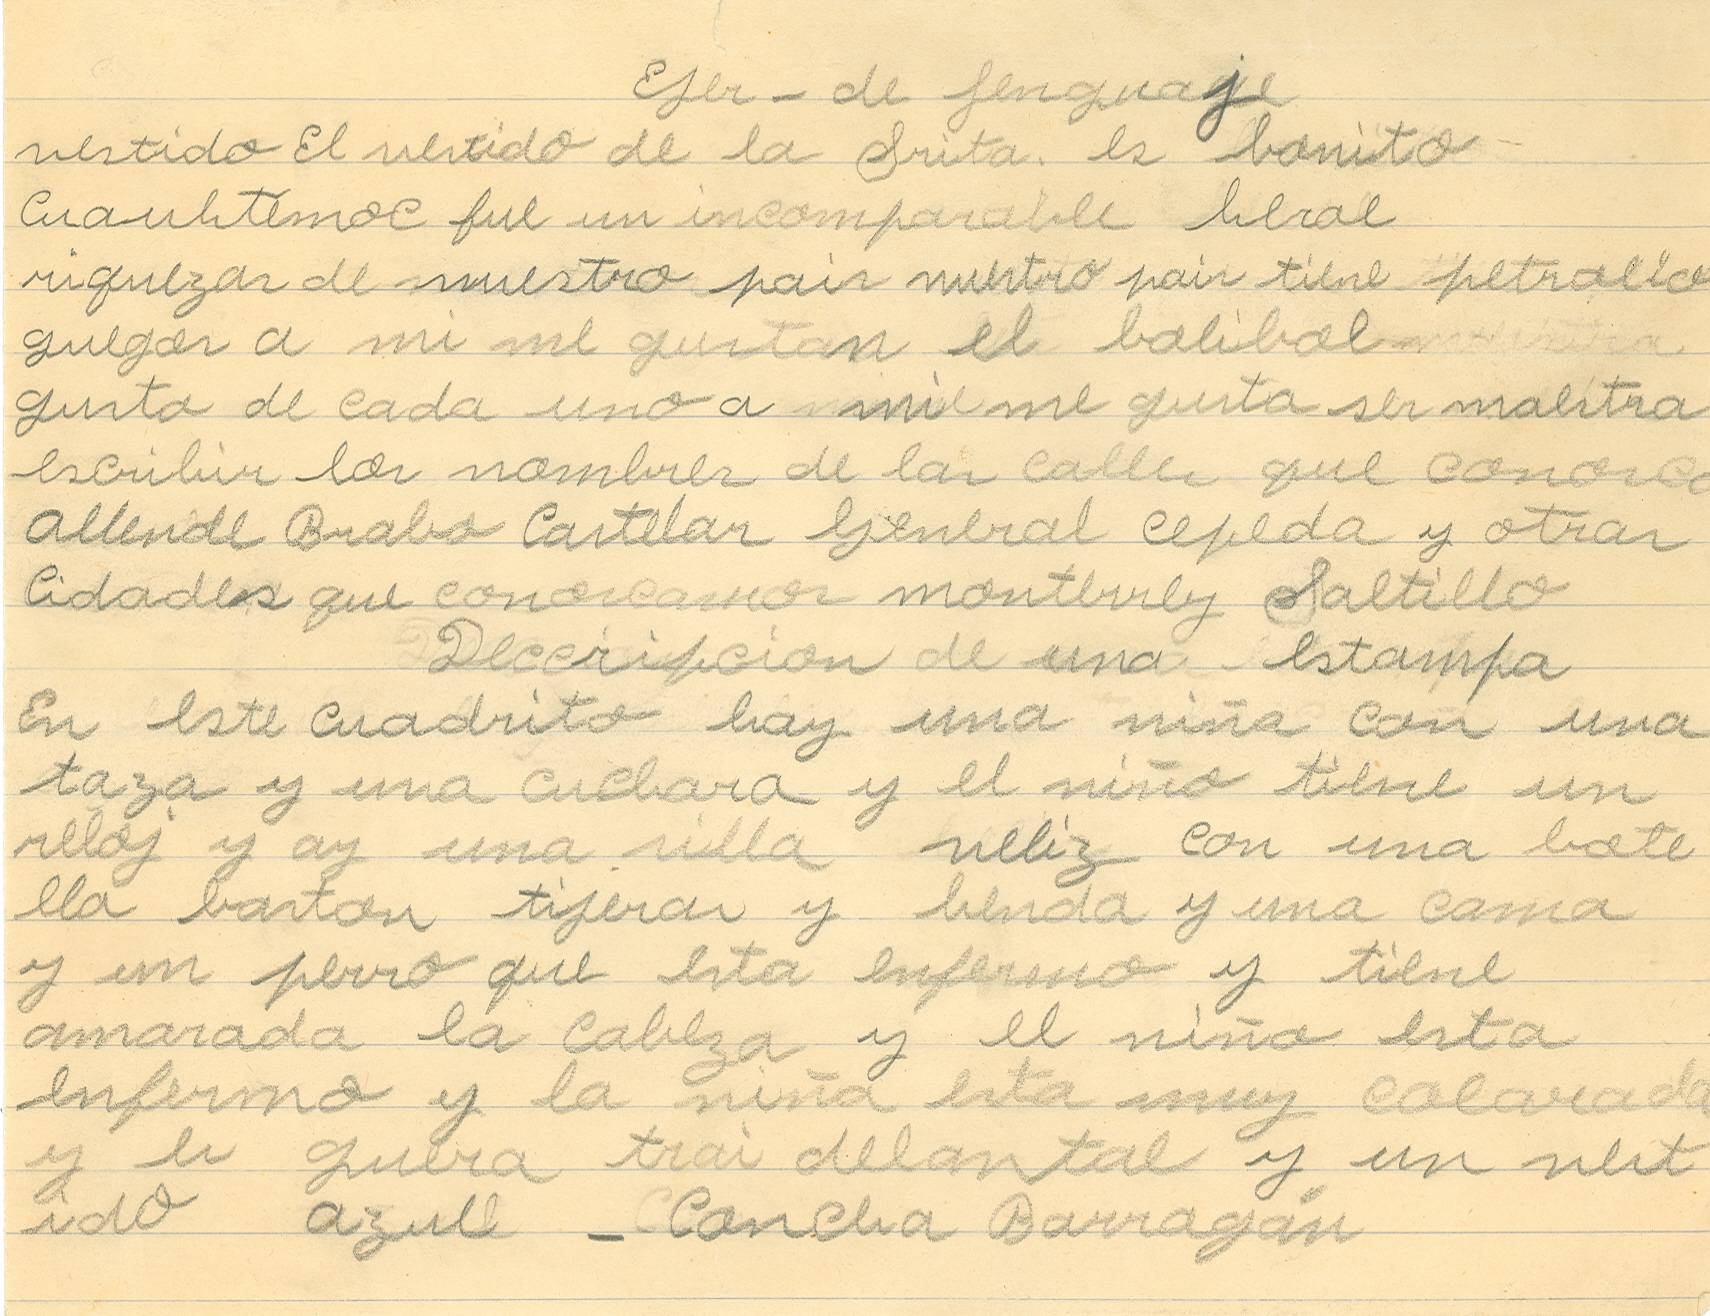 Ejer - de lenguaje
vestido El vestido de la Srita. es bonito
Cuauhtemoc fue un incomparable heroe
riquezas de nuestro pais nuestro pais tiene petroleo
guegos a mi me gustan el bolibol
gusto de cada uno a mi me gusta ser maestra
escribir los nombres de las calles que conosco
Allende Brabo Castelar General Cepeda y otras
Cidades que conoscamos monterrey Saltillo
Deccripcion de una estampa
En este cuadrito hay una niña con una
taza y una cuchara y el niño tiene un
reloj y ay una silla veliz con una bote
lla baston tijeras y benda y una cama
y un perro que esta enfermo y tiene
amarada la cabeza y el niño esta
enfermo y la niña esta muy colorada
y es guera trai delantal y un vest
ido azull - Concha Barragán